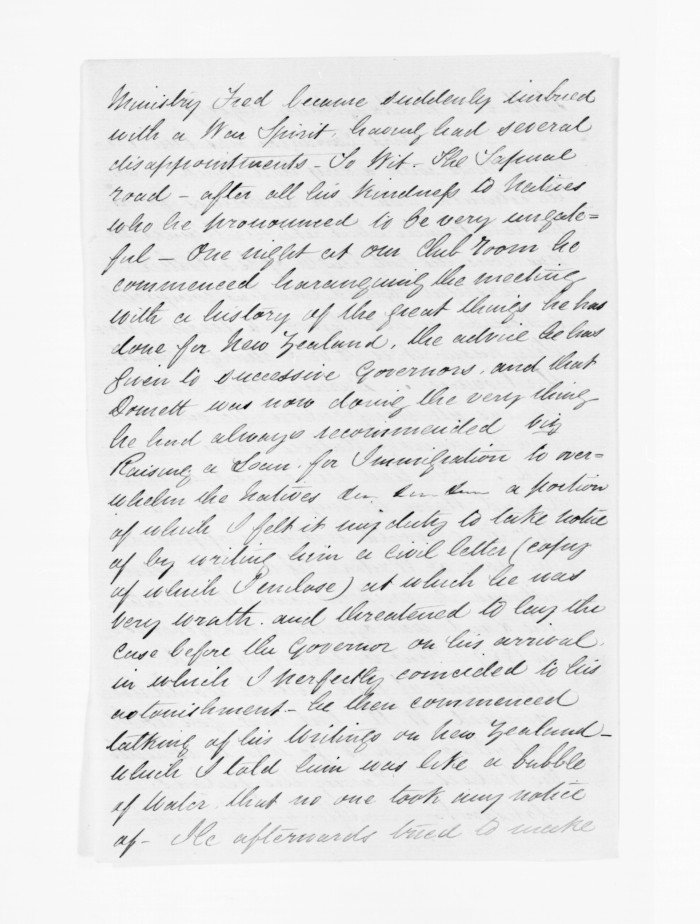 Ministry Fred became suddenly imbued
with a War Spirit, having had several
disappointments - To Wit. The
road - after all his kindness to Natives
who he pronounced to be very ungrate=
ful - One night at our Club room he
commenced haranguing the meeting
with a history of the great things he has
done for New Zealand, the advice he has
given to successive Governors, and that
Domett was now doing the very thing
he had always recommended viz
Raising a Loan for Immigration to over-
whelm the Natives a portion
of which I felt it my duty to take notice
of by writing him a civil letter (copy
of which I enclose) at which he was
very wrath. and threatened to lay the
case before the Governor on his arrival.
in which I perfectly coincided to his
astonishment - he then commenced
talking of his Writings on New Zealand -
which I told him was like a bubble
of water, that no one took any notice
of - He afterwards tried to make